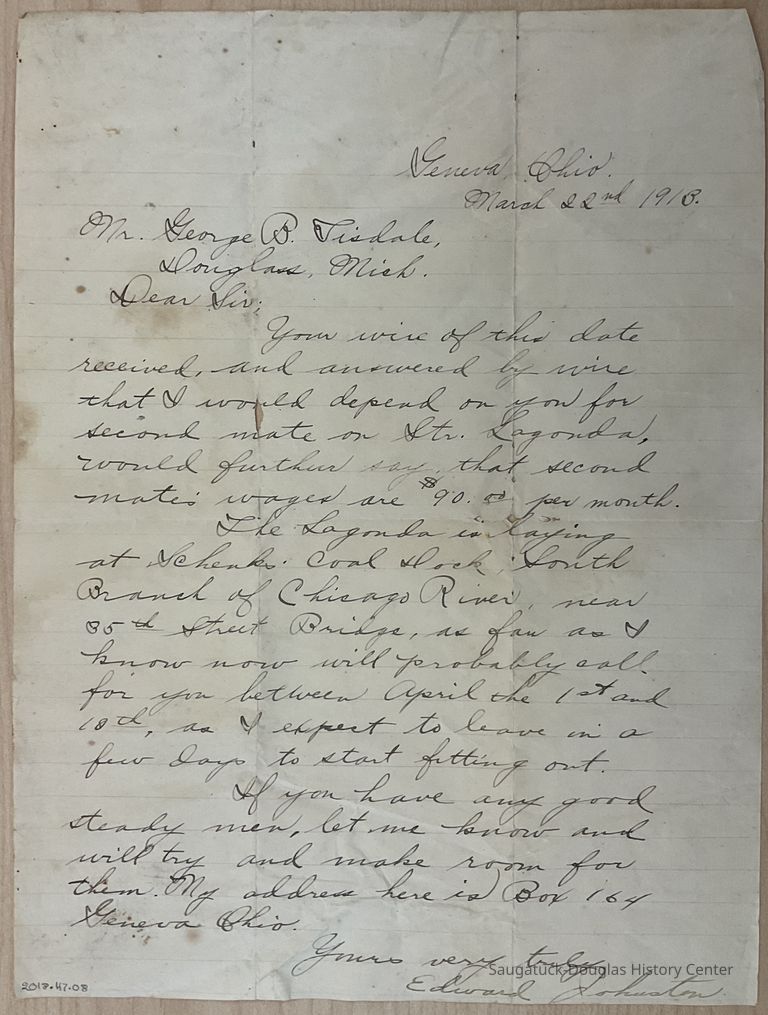 Geneva, Ohio.
March 22nd 1913.
Mr. George B. Tisdale,
Douglass, Mich.
Dear Sir;
Your wire of this date
received, and answered by wire
that I would depend on you for
second mate on Str. Lagonda,
would further say, that second
mate's wages are $90.00 per month.
The Lagonda is laying
at Schenks Coal Dock, South
Branch of Chicago River, near
35th Street Bridge, as far as I
know now will probably call
for you between April the 1st and
10th, as I expect to leave in a
few days to start fitting out.
If you have any good
steady men, let me know and
will try and make room for
them. My address here is Box 164
Geneva Ohio.
Yours very truly
Edward Johnston
Saugatuck-Douglas History Center
2018.47.08